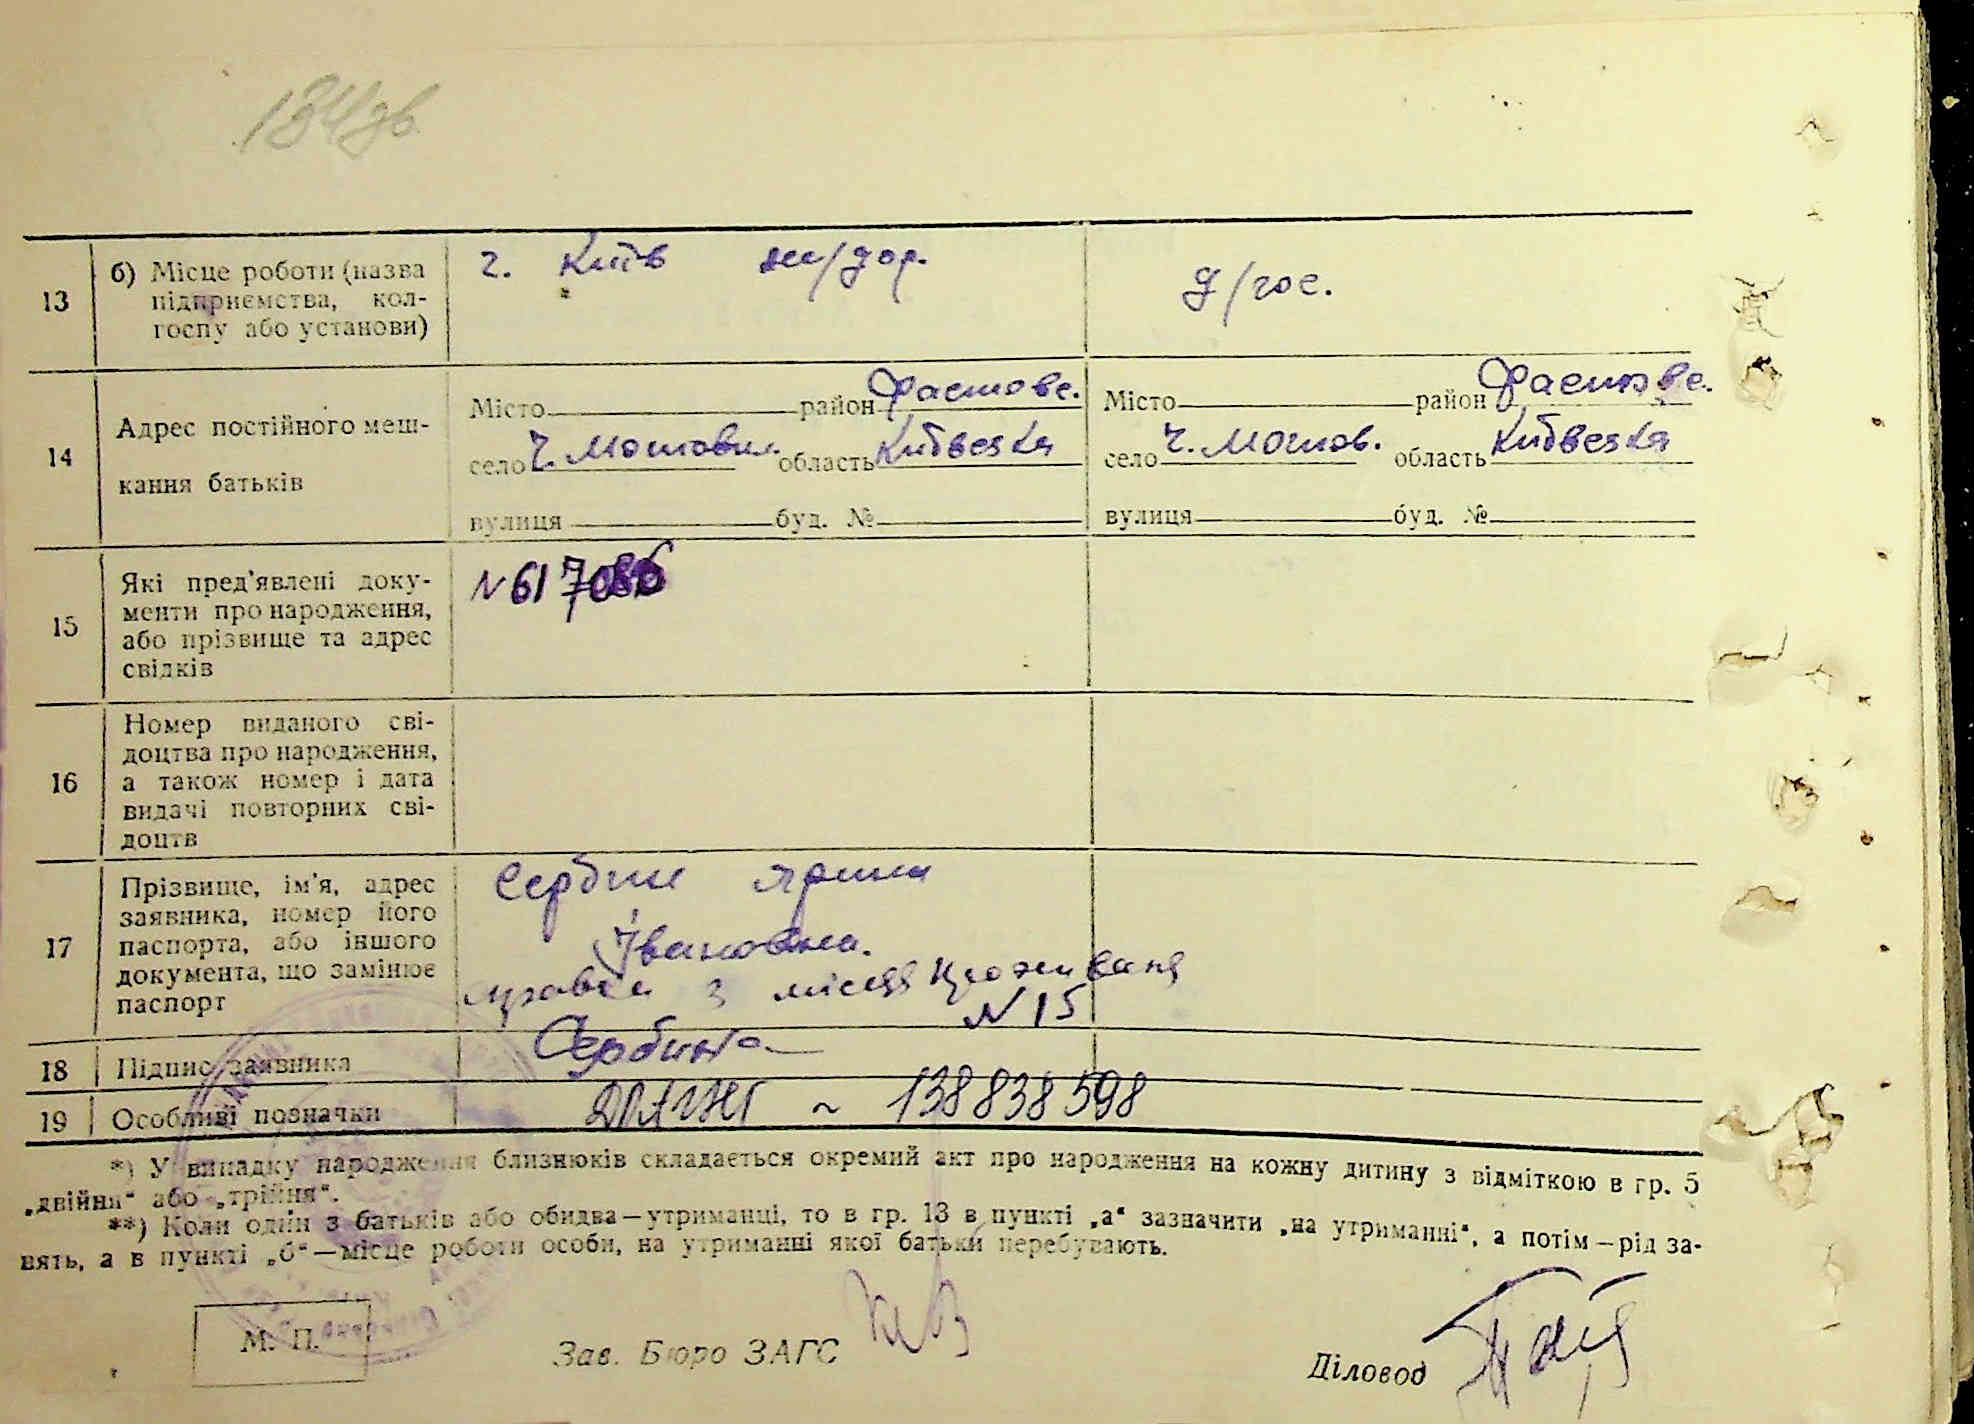 134зв
13
б) Місце роботи (назва
підприємства, кол-
госпу або установи)
г. Київ зл/дор.
д/гос.
14
Адрес постійного меш-
кання батьків
Місто район Фастовс.
село Ч. Мотовил. область Київська
вулиця буд. №
Місто район Фастовс.
село Ч. Мотов. область Київська
вулиця буд. №
15
Які пред'явлені доку-
менти про народження,
або прізвище та адрес
свідків
N 617086
16
Номер виданого сві-
доцтва про народження,
а також номер і дата
видачі повторних сві-
доцтв
17
Прізвище, ім'я, адрес
заявника, номер його
паспорта, або іншого
документа, що замінює
паспорт
Сербин Ярина
Івановна.
з місця
N 15
18 Підпис заявника
Сербина
19 Особливі позначки
ДРАЦСГ ~ 138838598
*) У випадку народження близнюків складається окремий акт про народження на кожну дитину з відміткою в гр. 5
„двійня“ або „трійня“.
**) Коли один з батьків або обидва—утриманці, то в гр. 13 в пункті „а“ зазначити „на утриманні“, а потім—рід за-
нять, а в пункті „б“—місце роботи особи, на утриманні якої батьки перебувають.
М. П.
Зав. Бюро ЗАГС
Діловод